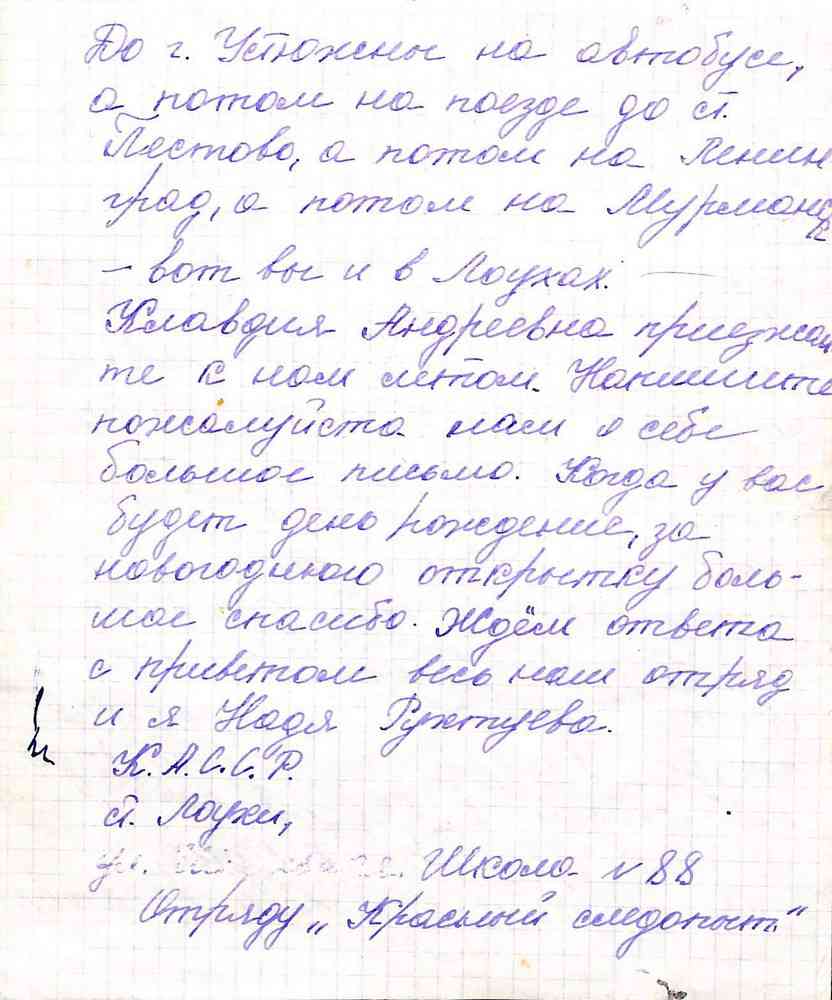 До г. Устюжены на автобусе,
а потом на поезде до ст.
Пестово, а потом на Ленин
град, а потом на Мурманск
– вот вы и в Лоухах.
Клавдия Андреевна приезжай
те к нам летом. Напишите
пожалуйста нам о себе
большое письмо. Когда у вас
будет день рождение, за
новогоднюю открытку боль-
шое спасибо. Ждём ответа
с приветом весь наш отряд
и я Надя Рухтуева.
К.А.С.С.Р.
ст. Лоухи,
ул. Школа N 88
Отряду „Красный следопыт."